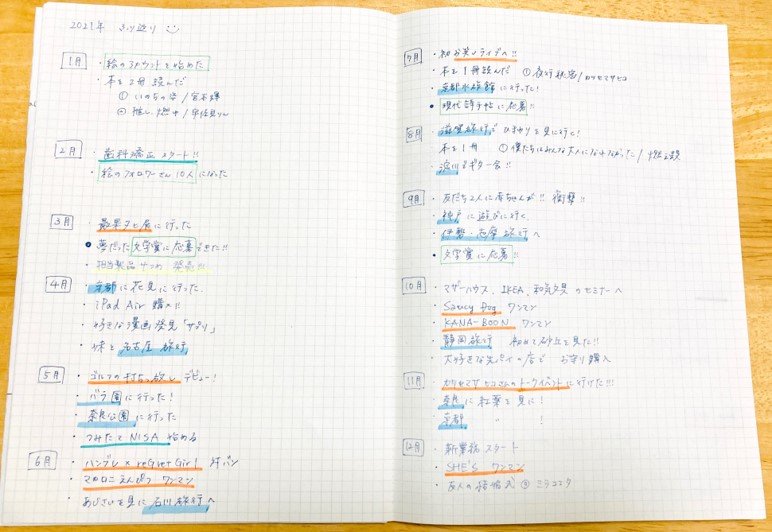 2021年 ふり返り
1月
・絵のアカウントを始めた
・本を2冊読んだ
① いのちの姿/宮本輝
② 推し、燃ゆ/宇佐見りん
2月
・歯科矯正スタート!!
・絵のフォロワーさん10人になった
3月
・最果タヒ展に行った
・夢だった文学賞に応募できた!!
・担当製品 発売!!
4月
・京都に花見に行った
・iPad Air 購入!!
・好きな漫画発見
・妹と名古屋旅行
5月
・ゴルフの打ちっ放しデビュー!
・バラ園に行った!
・奈良公園に行った
・つみたてNISA 始める
6月
・ハンブレ×reGretGirl 対バン
・マカロニえんぴつ ワンマン
・あじさいを見に石川旅行へ
7月
・初お笑いライブへ!!
・本を1冊読んだ ①夜行秘密/カツセマサヒコ
・京都水族館に行った!
・現代詩手帖に応募!!
8月
・滋賀旅行でひまわりを見に行く!
・本を1冊 ①僕たちはみんな大人になれなかった/燃え殻
・淀川でギター会!!
9月
・友だち2人に赤ちゃんが!! 衝撃!!
・神戸に遊びに行く
・伊勢・志摩旅行へ
・文学賞に応募!!
10月
・マザーハウス、IKEA、和気文具のセミナーへ
・Saucy Dog ワンマン
・KANA-BOON ワンマン
・静岡旅行 初めて砂丘を見た!!
・大好きな先パイの店で お守り購入
11月
・カツセマサヒコさんのトークイベントに行けた!!!
・奈良に紅葉を見に!
・京都 〃 !
12月
・新業務スタート
・SHE'S ワンマン
・友人の結婚式